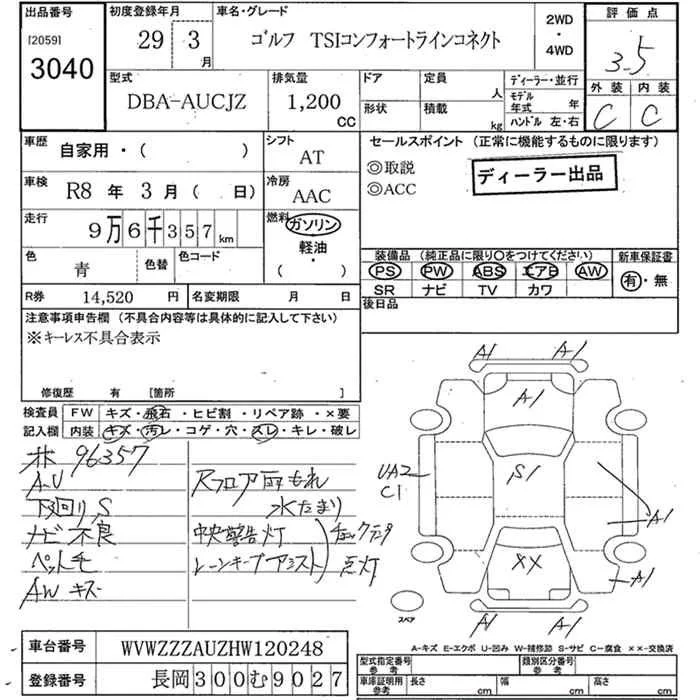 出品番号
[2059]
3040
初度登録年月
29 3 月
車名・グレード
ゴルフ TSIコンフォートラインコネクト
2WD
・
4WD
評価点
3.5
外装 内装
C C
型式
DBA-AUCJZ
排気量
1,200
CC
ドア 定員 人
形状 積載 kg
ディーラー・並行
モデル年式 年
ハンドル 左・右
車歴 自家用・( )
シフト
AT
車検 R8 年 3 月 ( 日)
冷房
AAC
走行
9万6千357km
燃料
ガソリン
軽油・
( )
色
青
色替
色コード
R券 14,520 円
名変期限 月 日
セールスポイント (正常に機能するものに限ります)
◎取説
◎ACC
ディーラー出品
装備品 (純正品に限り〇をつけてください)
PS PW ABS エアB AW
SR ナビ TV カワ
新車保証書
有・無
後日品
注意事項申告欄 (不具合内容等は具体的に記入して下さい)
※キーレス不具合表示
修復歴 有 [箇所 ]
検査員記入欄
FW キズ・飛石・ヒビ割・リペア跡・×要
内装 キズ・汚レ・コゲ・穴・スレ・キレ・破レ
96357
A-U
下回り S
ナビ 不良
ペット毛
AW キズ
Rフロア雨もれ
水たまり
中央警告灯
レーンキープアシスト
点灯
A1 A1
A1
S1
UA2
C1
A1
A1
XX
A1 A1
スペア
A-キズ E-エクボ U-凹み W-補修跡 S-サビ C-腐食 ××-交換済
車台番号 WVWZZZAUZHW120248
登録番号 長岡300む9027
型式指定番号
参考
類別区分番号
参考
車庫証明用
参考
長さ cm
幅 cm
高さ cm